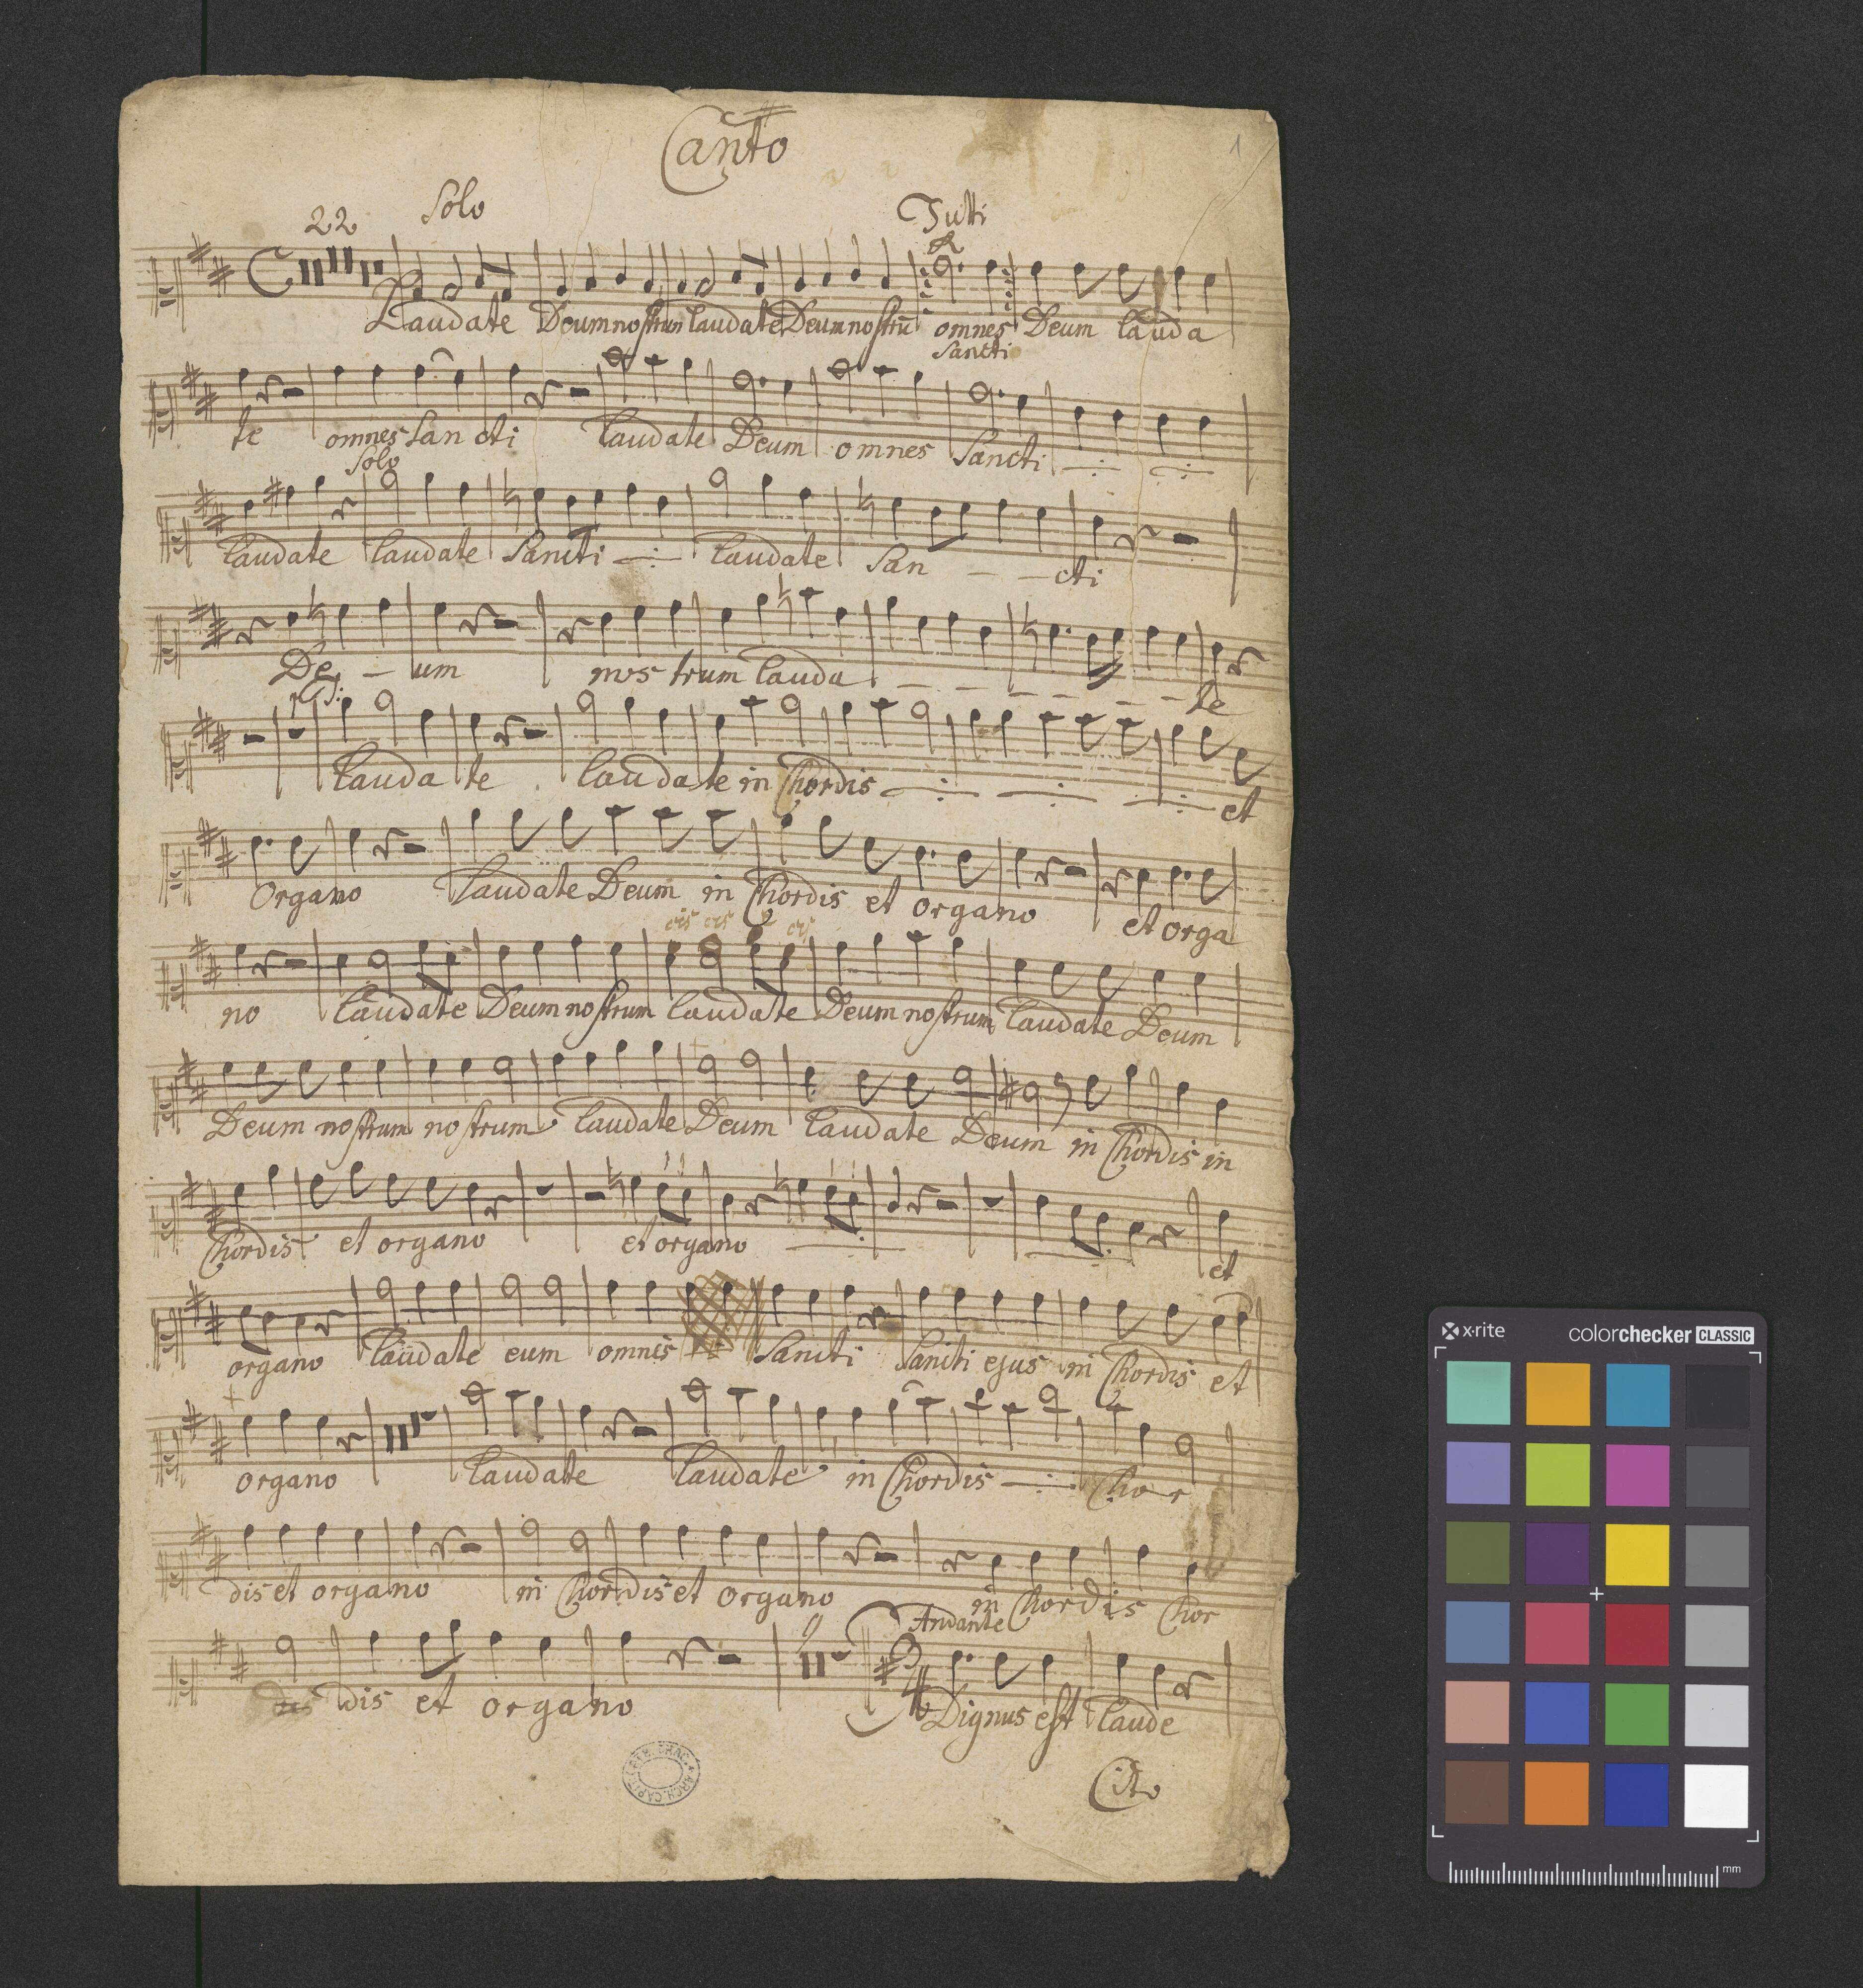 Canto
1
22 Solo Tutti
Laudate Deum nostrum laudate Deum nostrū omnes Deum lauda
Sancti
te omnes San cti laudate Deum omnes Sancti
Solo
laudate laudate Sancti laudate San - - cti
De - um nos trum lauda - - - - - - te
lauda te laudate in Chordis et
Organo laudate Deum in Chordis et organo et orga
cis cis
no laudate Deum nostrum laudate Deum nostrum laudate Deum
Deum nostrum nostrum laudate Deum laudate Deum in Chordis in
Chordis et organo et organo et
organo laudate eum omnes Sancti Sancti ejus in Chordis et
organo laudate laudate in Chordis Chor
dis et organo in Chordis et organo in Chordis Chor
Andante
dis et organo 9 3/4 Dignus est laude
Cito
ARCH. CAPIT. CATH. CRAC.
x·rite colorchecker CLASSIC
mm